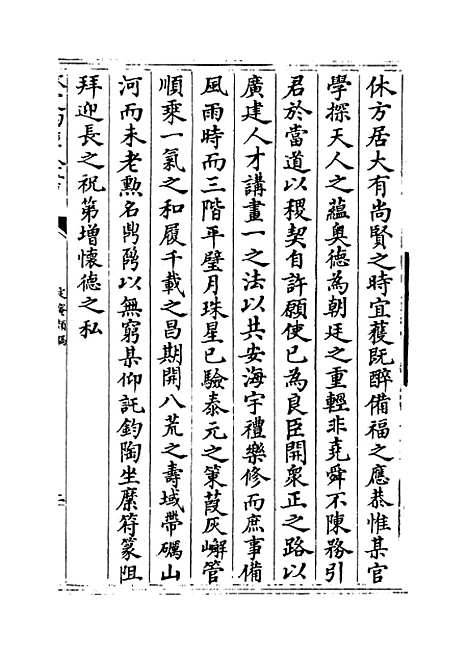 休方居大有尚賢之時宜蒦旣醉備福之應恭惟某官
學探天人之蘊奥德為朝廷之重輕非堯舜不陳務引
君於當道以稷契自許願使已為良臣開衆正之路以
廣建人才講畫一之法以共安海宇禮樂修而庶事備
風雨時而三階平璧月珠星已驗泰元之䇿葭灰嶰管
順乘一氣之和履千載之昌期開八荒之壽域帶礪山
河而未老勲名鼎鼐以無窮某仰託鈞陶坐縻符篆阻
拜迎長之祝第增懷德之私